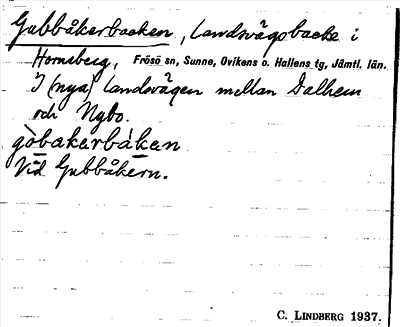 Gubbåkerbacken, Landsvägsbacke i
Hornsberg, Frösö sn, Sunne, Ovikens o. Hallens tg, Jämtl. län.
I (nya) landsvägen mellan Dalhem
och Nybo.
gòbakerbáken
Vid Gubbåkern.
C. LINDBERG 1937.